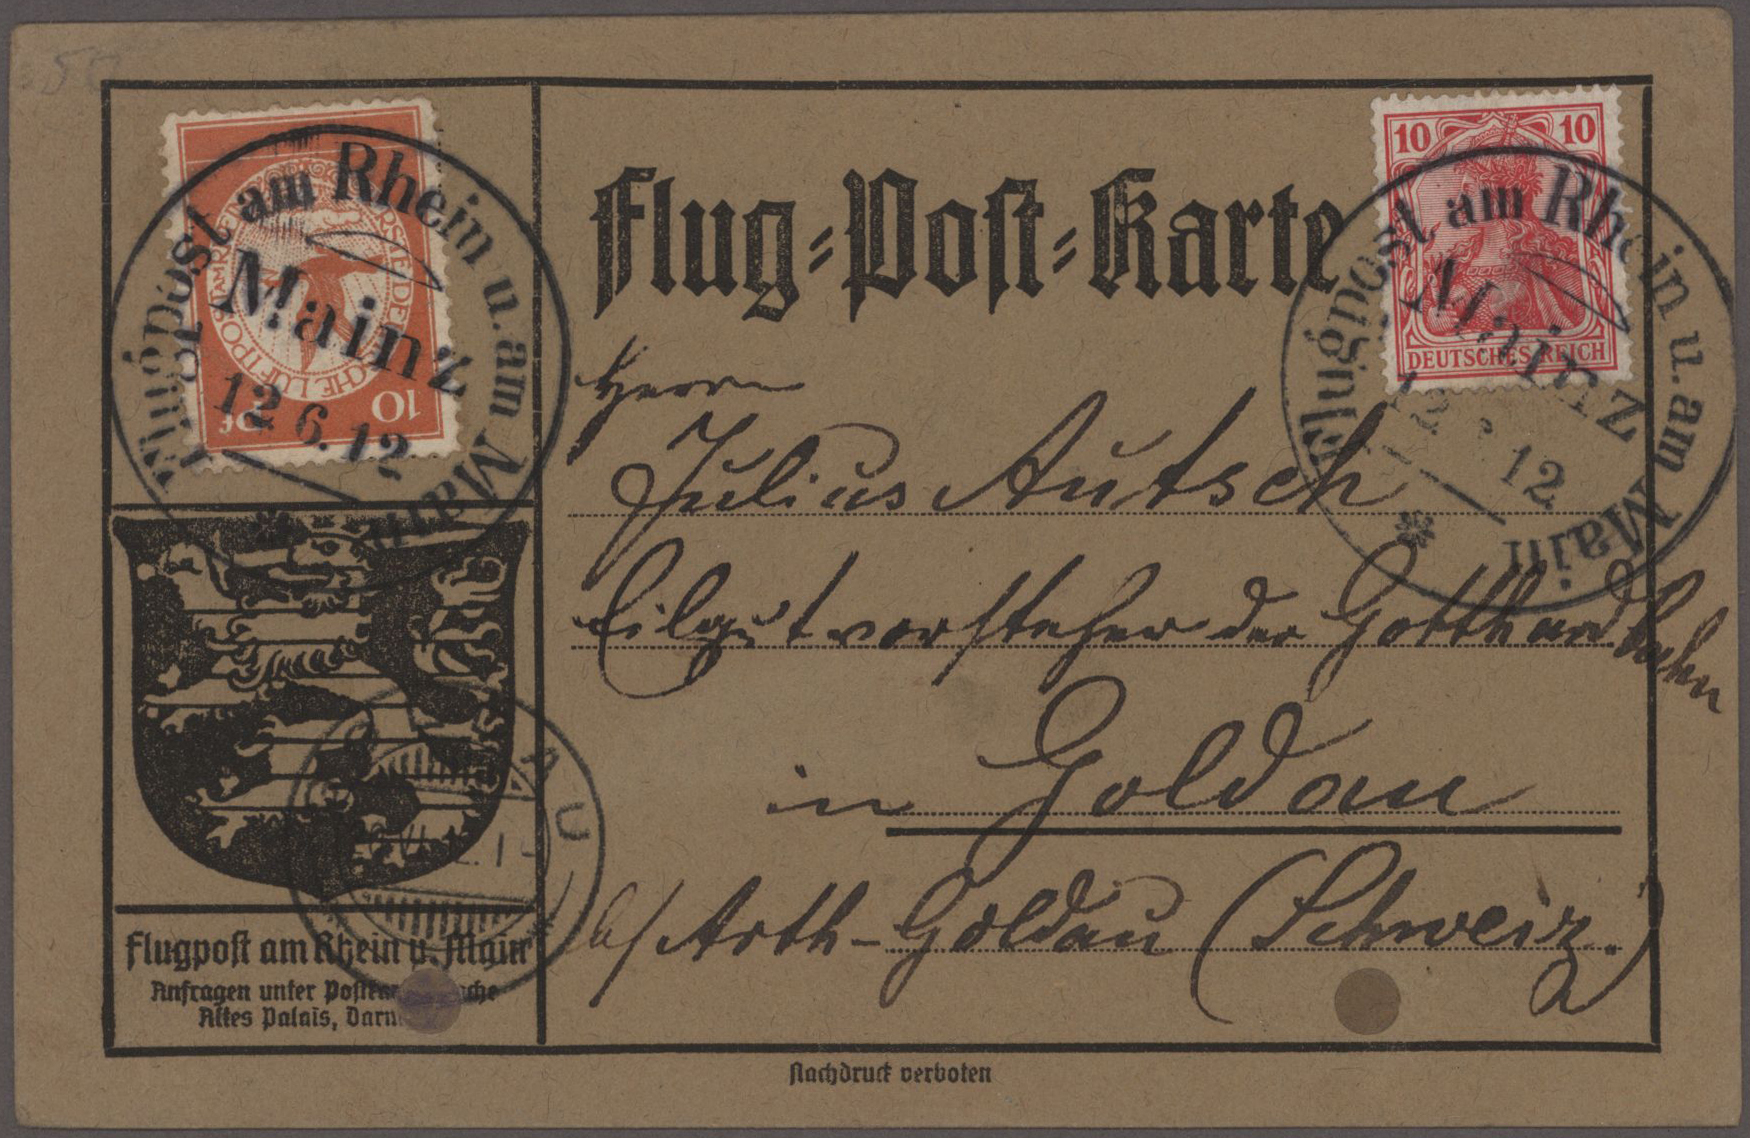 10 10
DEUTSCHES REICH
10
Flugpost am Rhein u. am Main
Mainz
12 6. 12
Flugpost am Rhein u. am Main
Mainz
12 12
Flug-Post-Karte
Herrn
Julius Autsch
Eilgutvorsteher der Gotthardbahn
in Goldau
b/ Arth-Goldau (Schweiz.)
AU
Flugpost am Rhein u. Main
Anfragen unter
Altes Palais,
Nachdruck verboten